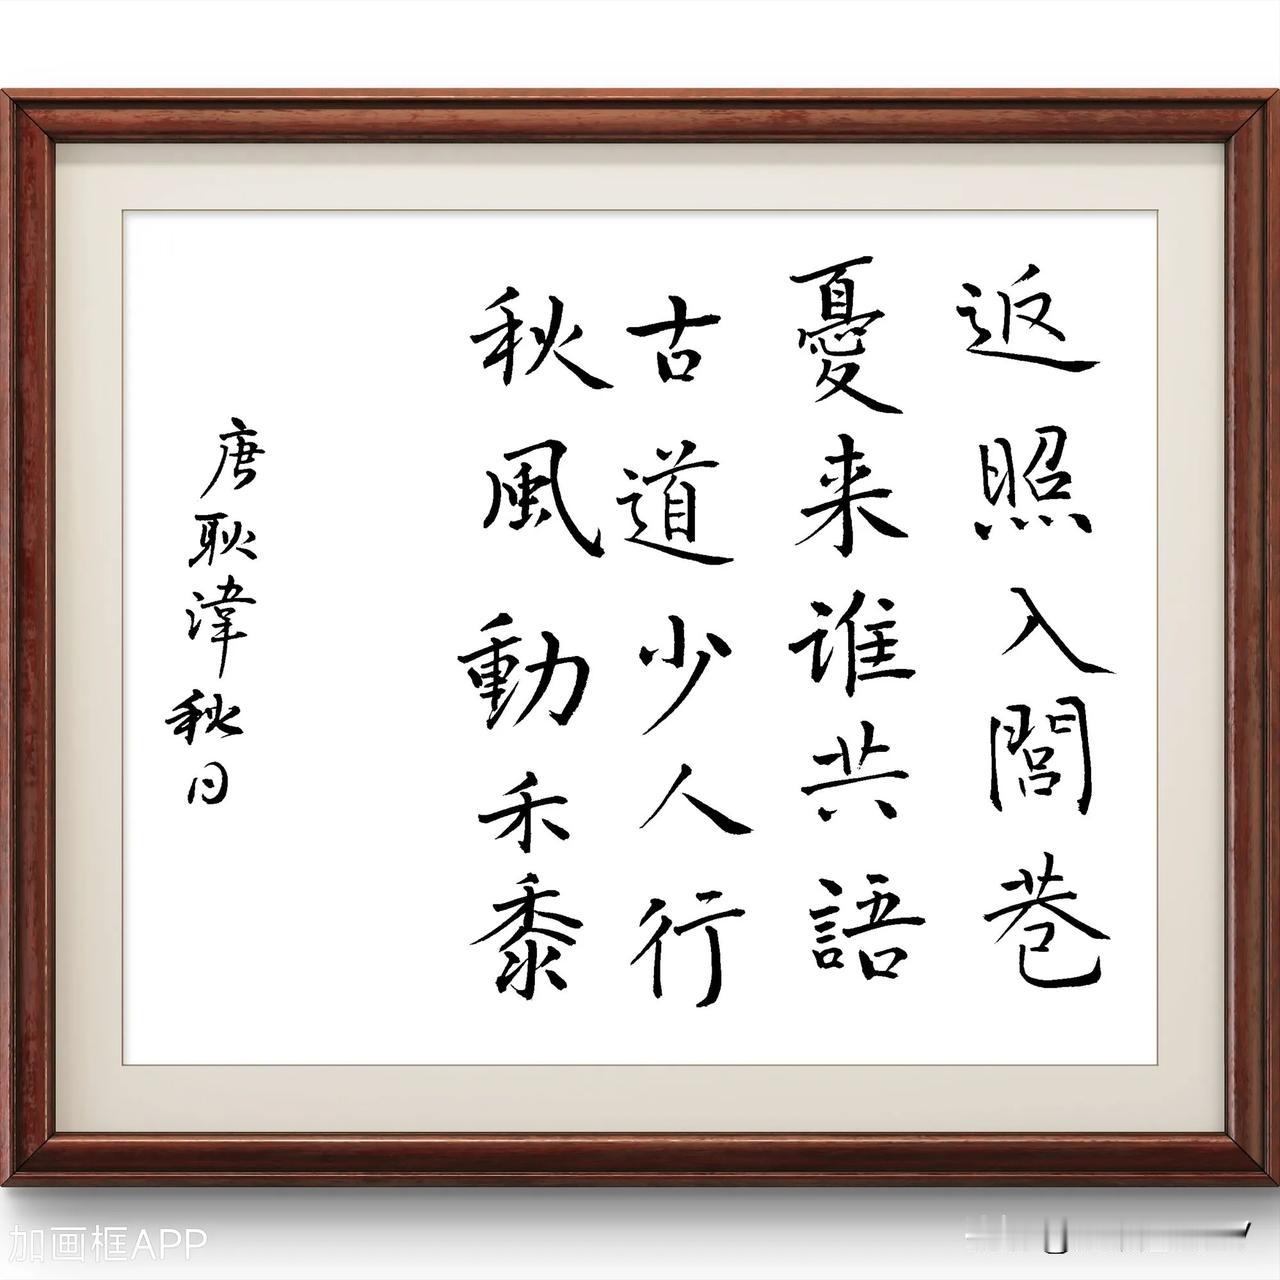 返照入閭巷
憂来谁共語
古道少人行
秋風動禾黍
唐耿湋秋日
加画框APP